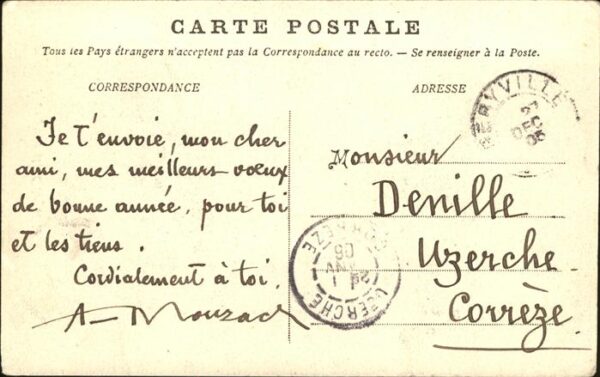 CARTE POSTALE
Tous les Pays étrangers n'acceptent pas la Correspondance au recto. — Se renseigner à la Poste.
CORRESPONDANCE
Je t'envoie, mon cher
ami, mes meilleurs vœux
de bonne année, pour toi
et les tiens.
Cordialement à toi.
ADRESSE
Monsieur
Denille
Uzerche
Corrèze.
UZERCHE
CORRÈZE